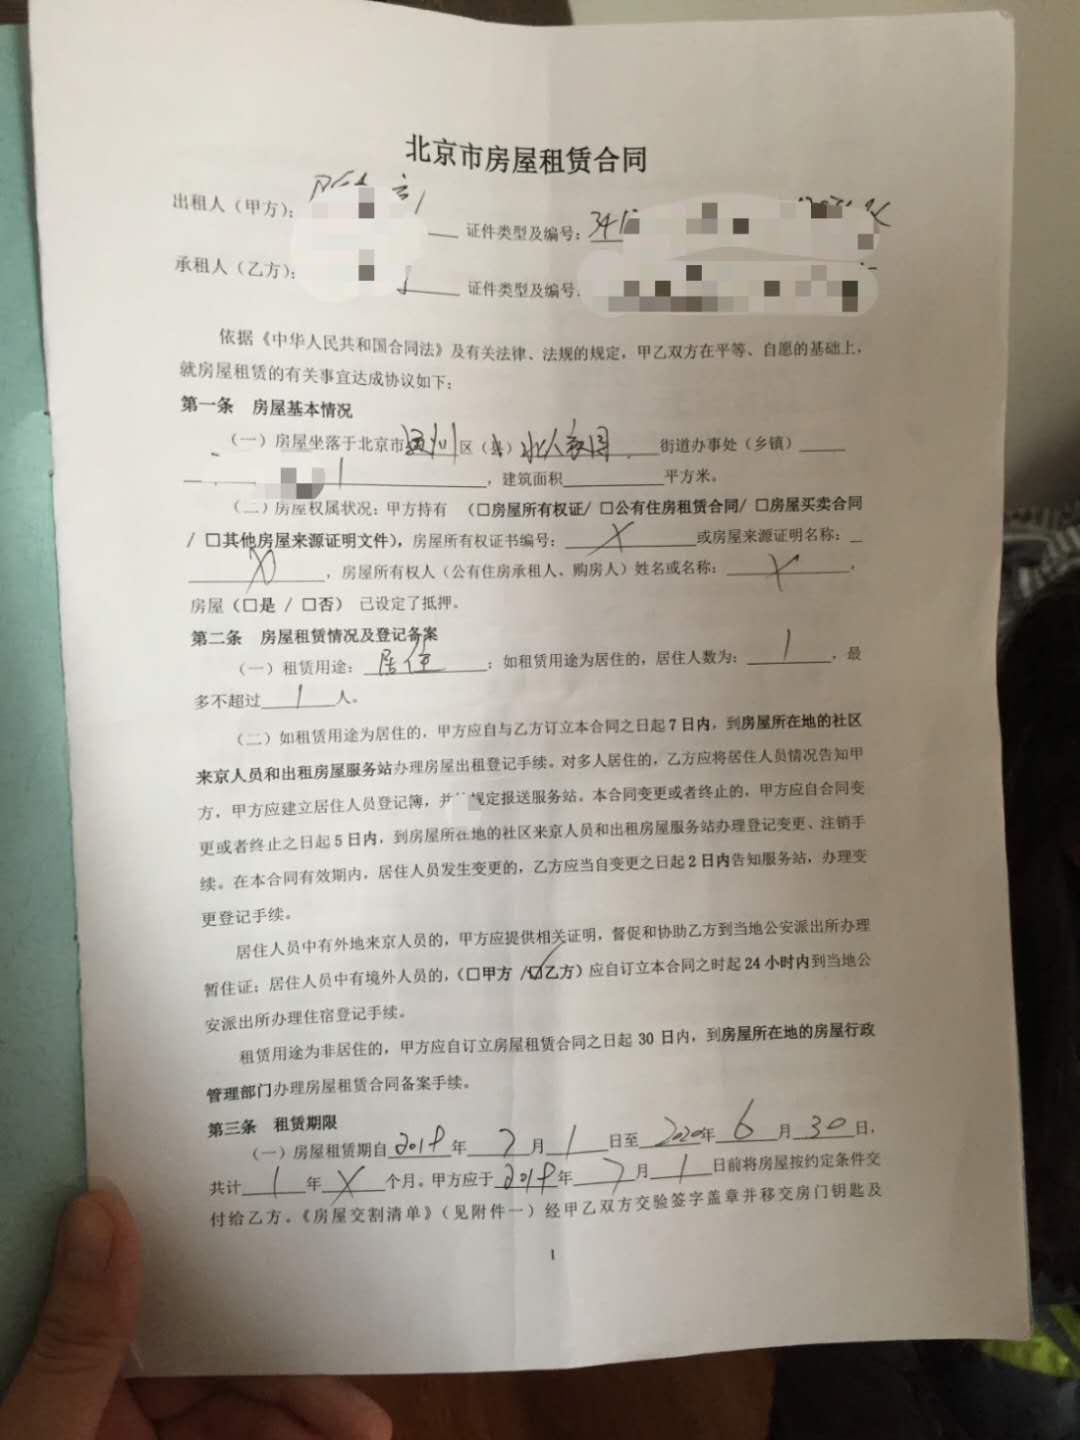 北京市房屋租赁合同
出租人（甲方）： 证件类型及编号：
承租人（乙方）： 证件类型及编号：
依据《中华人民共和国合同法》及有关法律、法规的规定，甲乙双方在平等、自愿的基础上，
就房屋租赁的有关事宜达成协议如下：
第一条 房屋基本情况
（一）房屋坐落于北京市 区（县） 街道办事处（乡镇）
，建筑面积 平方米。
（二）房屋权属状况：甲方持有 （□房屋所有权证/ □公有住房租赁合同/ □房屋买卖合同
/ □其他房屋来源证明文件），房屋所有权证书编号： X 或房屋来源证明名称：
X ，房屋所有权人（公有住房承租人、购房人）姓名或名称： X ，
房屋（□是 / □否） 已设定了抵押。
第二条 房屋租赁情况及登记备案
（一）租赁用途： 居住 ；如租赁用途为居住的，居住人数为： 1 ，最
多不超过 1 人。
（二）如租赁用途为居住的，甲方应自与乙方订立本合同之日起 7 日内，到房屋所在地的社区
来京人员和出租房屋服务站办理房屋出租登记手续。对多人居住的，乙方应将居住人员情况告知甲
方，甲方应建立居住人员登记簿，并 规定报送服务站。本合同变更或者终止的，甲方应自合同变
更或者终止之日起 5 日内，到房屋所在地的社区来京人员和出租房屋服务站办理登记变更、注销手
续。在本合同有效期内，居住人员发生变更的，乙方应当自变更之日起 2 日内告知服务站，办理变
更登记手续。
居住人员中有外地来京人员的，甲方应提供相关证明，督促和协助乙方到当地公安派出所办理
暂住证；居住人员中有境外人员的，（□甲方 /☑乙方）应自订立本合同之时起 24 小时内到当地公
安派出所办理住宿登记手续。
租赁用途为非居住的，甲方应自订立房屋租赁合同之日起 30 日内，到房屋所在地的房屋行政
管理部门办理房屋租赁合同备案手续。
第三条 租赁期限
（一）房屋租赁期自 2019 年 7 月 1 日至 2020 年 6 月 30 日，
共计 1 年 X 个月。甲方应于 2019 年 7 月 1 日前将房屋按约定条件交
付给乙方。《房屋交割清单》（见附件一）经甲乙双方交验签字盖章并移交房门钥匙及
1